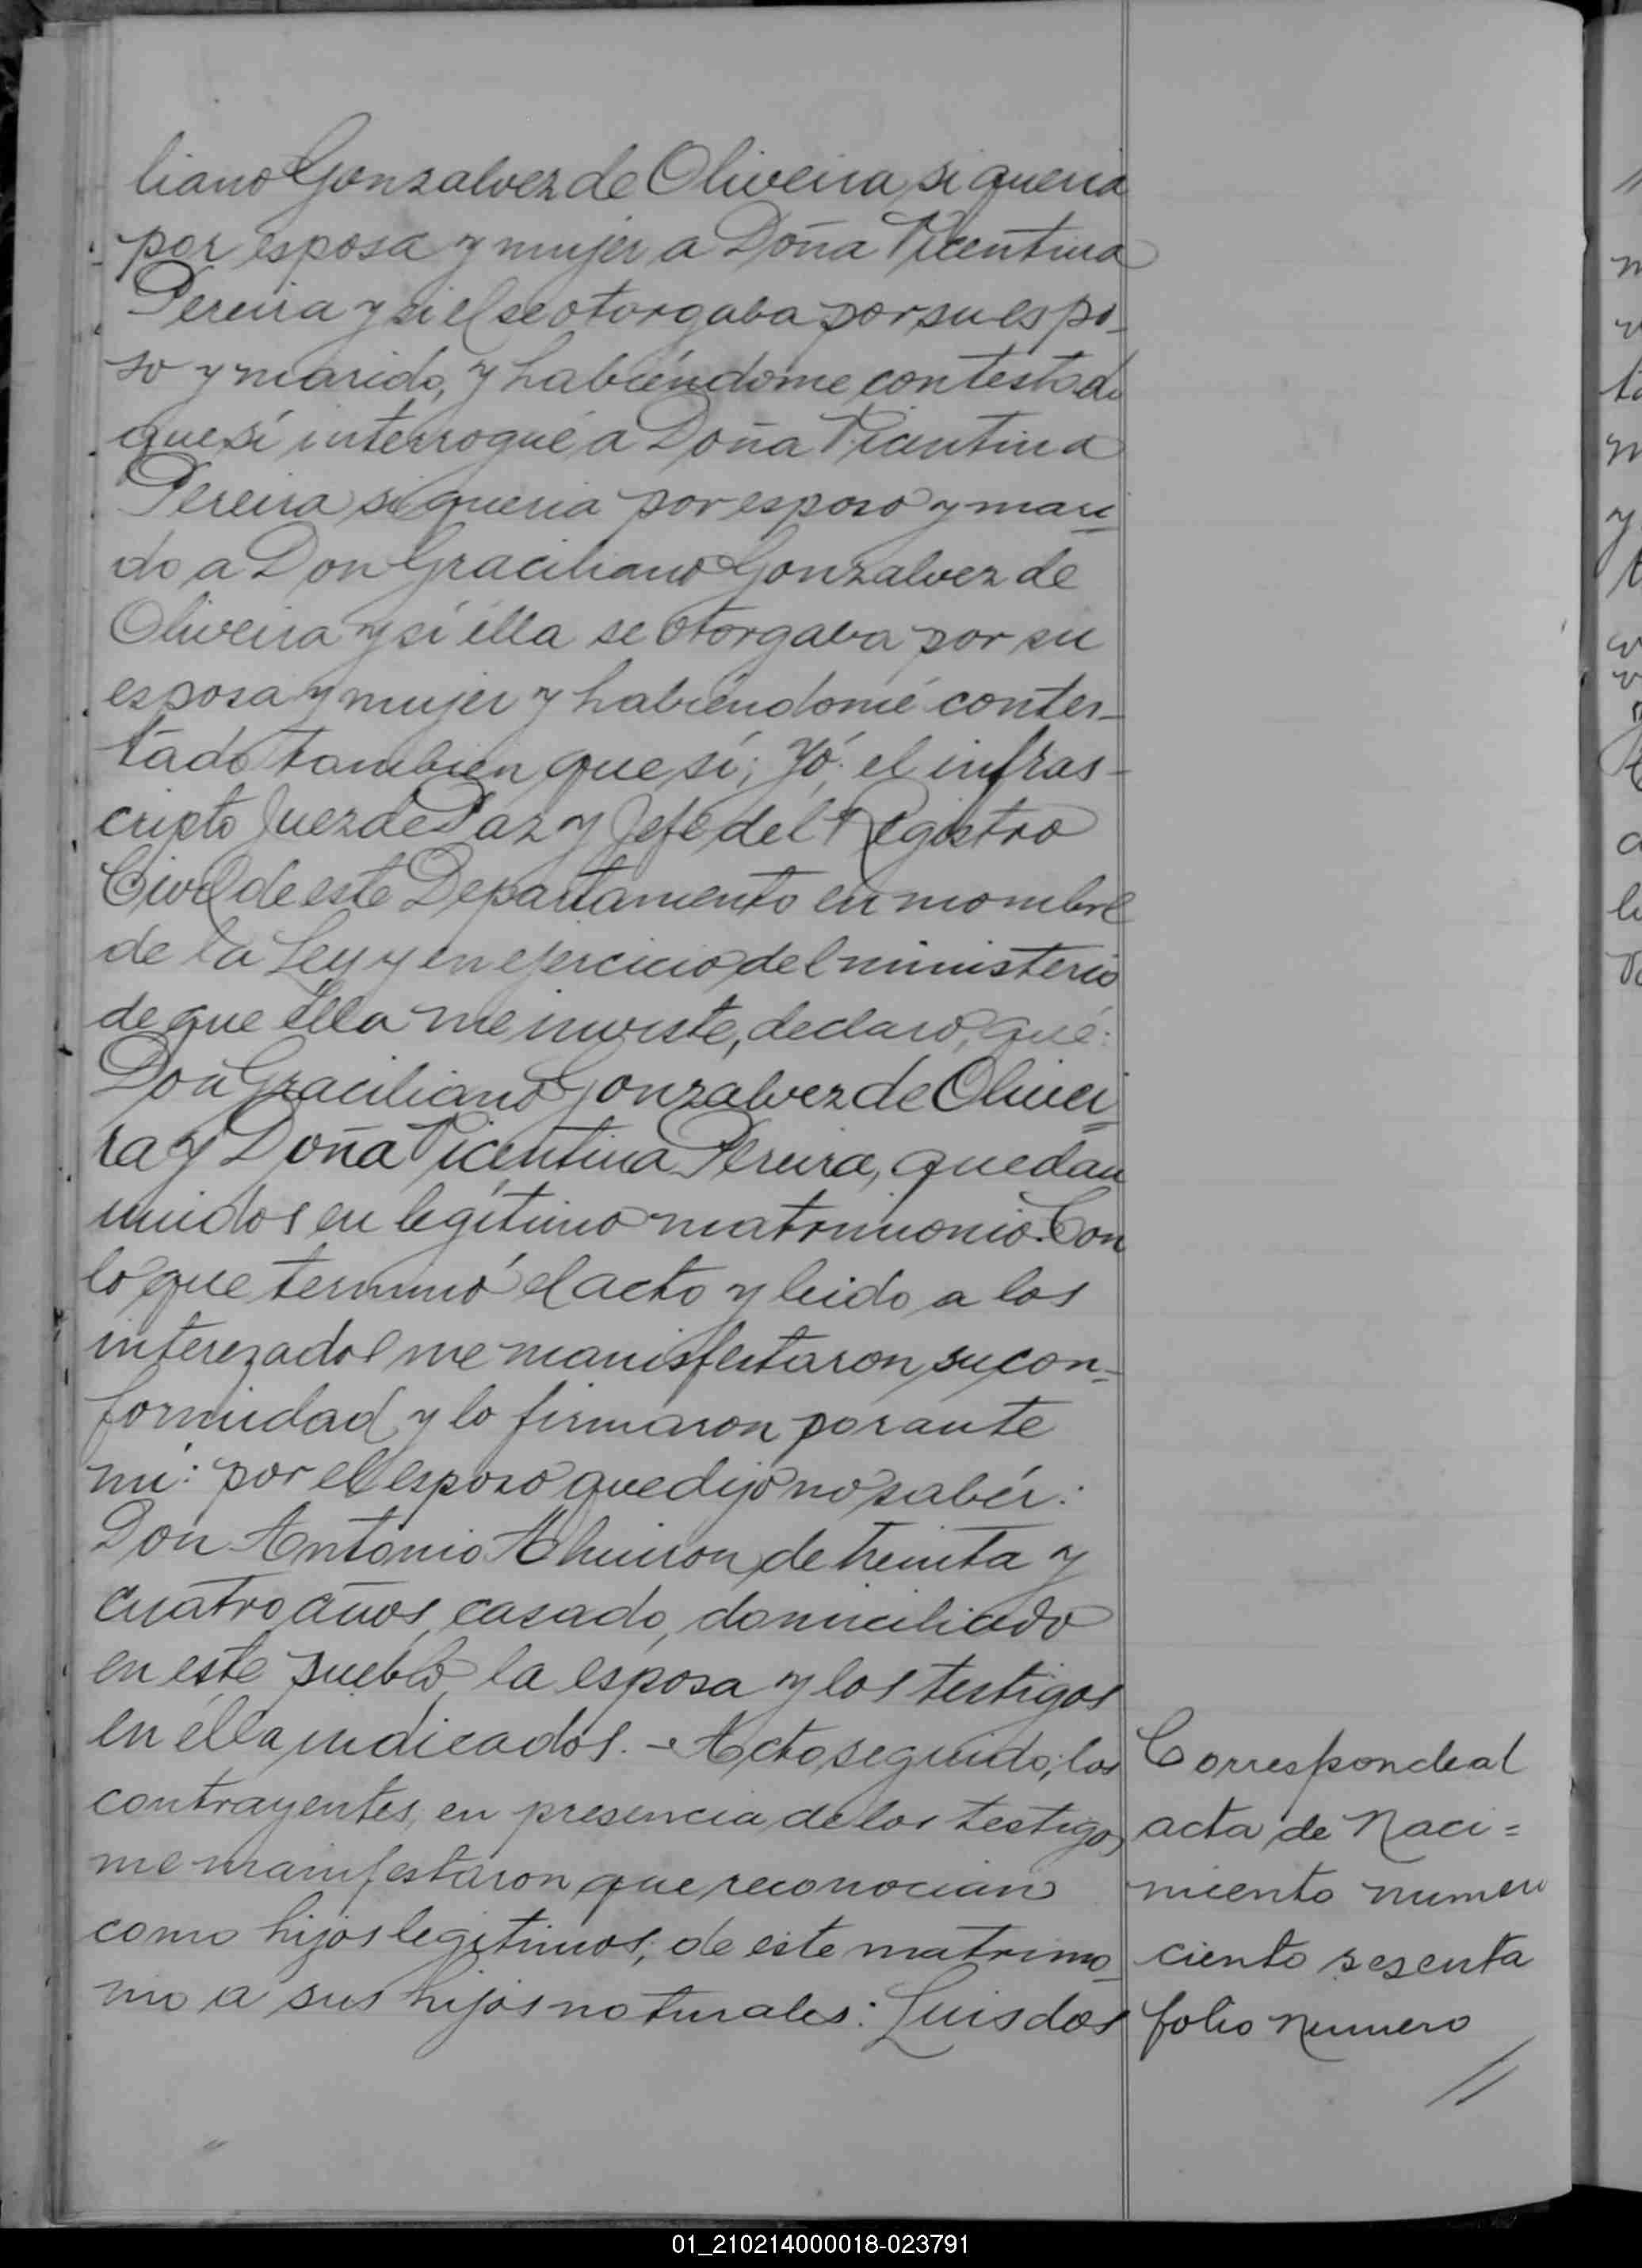 liano Gonzalvez de Oliveira si queria
por esposa y mujer a Doña Vicentina
Pereira y si el se otorgaba por su espo-
so y marido, y habiéndome contestado
que sí interrogué a Doña Vicentina
Pereira si queria por esposo y mari-
do a Don Graciliano Gonzalvez de
Oliveira y si élla se otorgaba por su
esposa y mujer y habiéndome contes-
tado tambien que sí; Yó, el infras-
cripto Juez de Paz y Jefe del Registro
Civil de este Departamento en nombre
de la Ley y en ejercicio del ministerio
de que élla me inviste, declaro, que:
Don Graciliano Gonzalvez de Olivei-
ra y Doña Vicentina Pereira, quedan
unidos en legítimo matrimonio. Con
lo que terminó el acto y leido a los
interezados me manisfestaron su con-
formidad y lo firmaron por ante
mi: por el esposo que dijo no saber:
Don Antonio de treinta y
cuatro años, casado, domiciliado
en este pueblo, la esposa y los testigos
en élla indicados. - Acto seguido, los
contrayentes, en presencia de los testigos
me manifestaron que reconocian
como hijos legítimos, de este matrimo-
nio a sus hijos naturales: Luis dos
Corresponde al
acta de Naci=
miento numero
ciento sesenta
folio numero
//
01_210214000018-023791